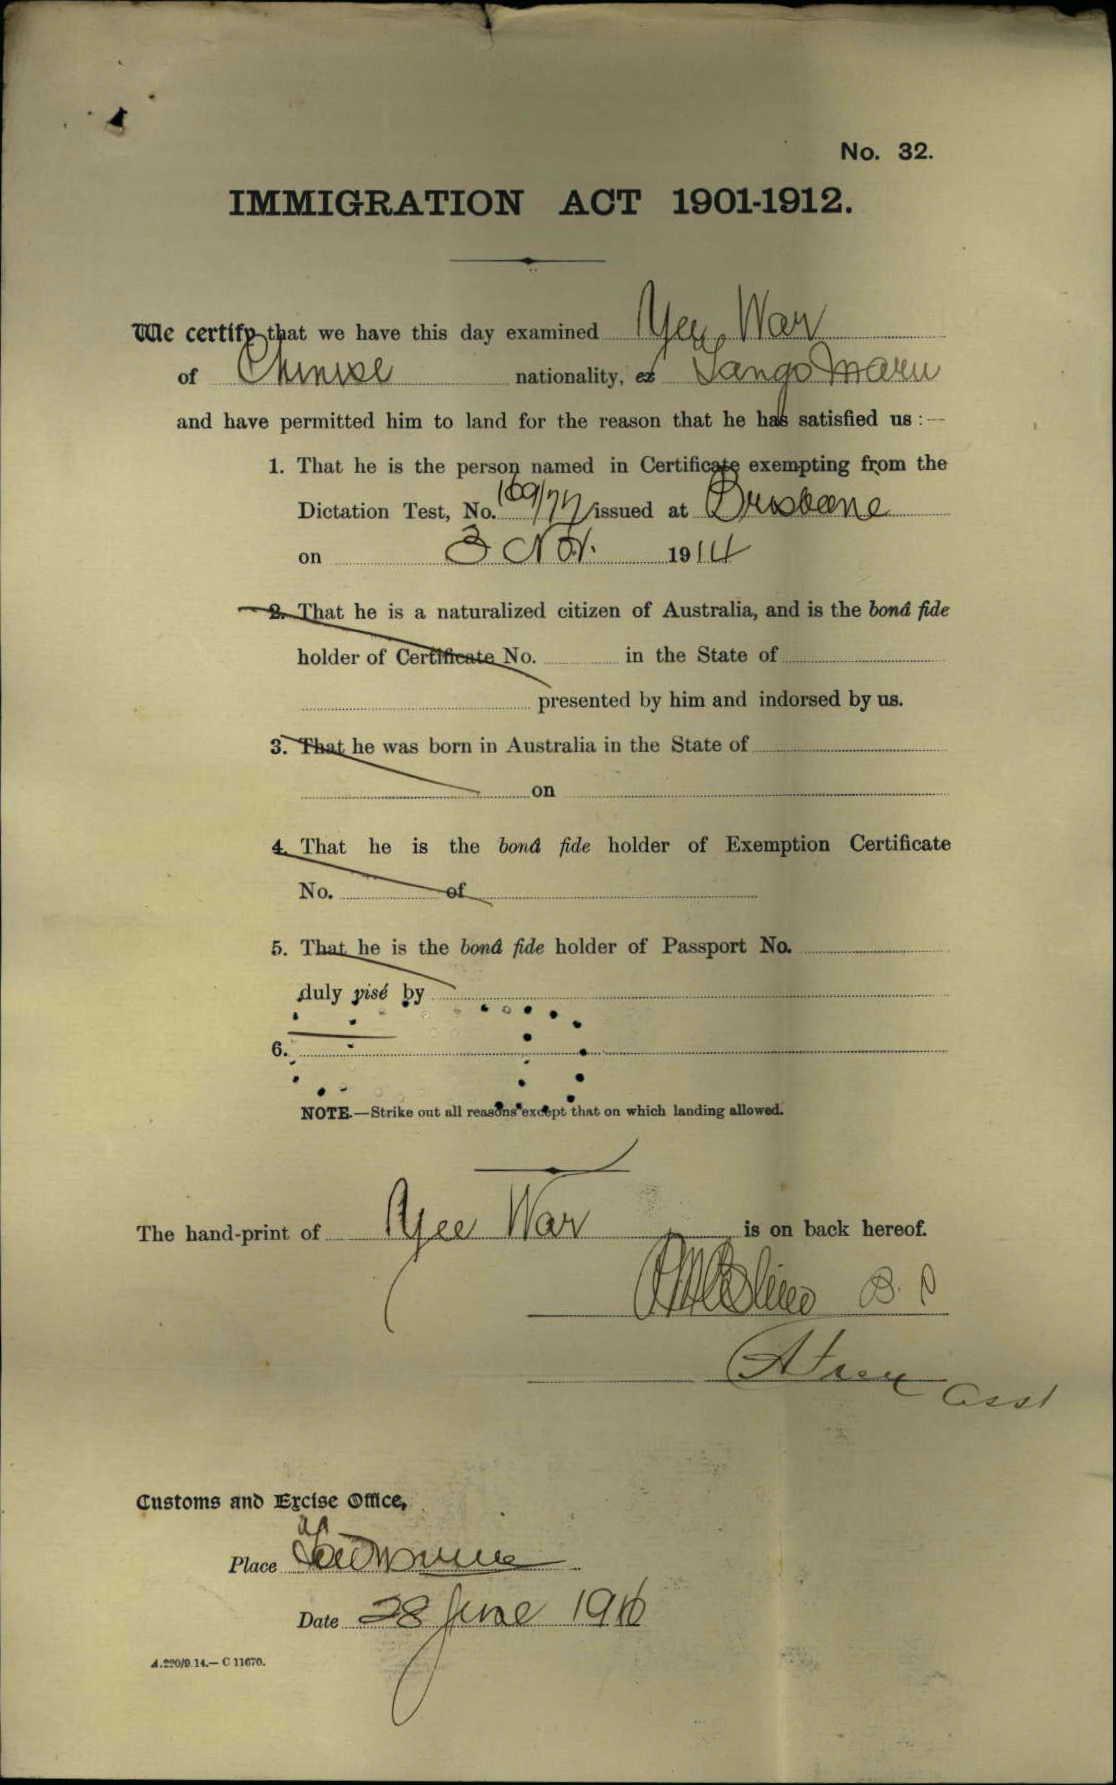 No. 32.
IMMIGRATION ACT 1901-1912.
We certify that we have this day examined Yee War
of Chinese nationality, ex Tango Maru
and have permitted him to land for the reason that he has satisfied us :—
1. That he is the person named in Certificate exempting from the
Dictation Test, No. 169/77 issued at Brisbane
on 3 Nov. 1914
2. That he is a naturalized citizen of Australia, and is the bonâ fide
holder of Certificate No. in the State of
presented by him and indorsed by us.
3. That he was born in Australia in the State of
on
4. That he is the bonâ fide holder of Exemption Certificate
No. of
5. That he is the bonâ fide holder of Passport No.
duly visé by
6.
NOTE.—Strike out all reasons except that on which landing allowed.
The hand-print of Yee War is on back hereof.
Asst
Customs and Excise Office,
Place Townsville
Date 28 June 1916
A.220/9.14.— C 11670.